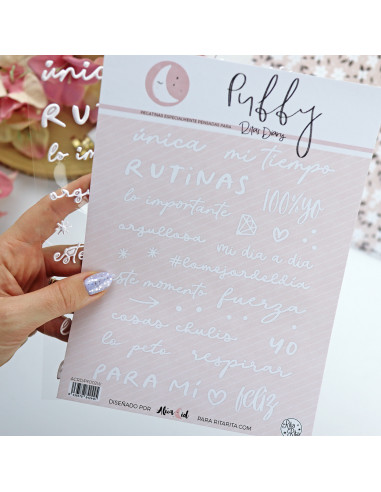 Puffy
RELATINAS ESPECIALMENTE PENSADAS PARA
Rita Diary
única mi tiempo
RUTiNAS 100%yo
lo importante
orgullosa mi día a día
#lomejordeldía
este momento fuerza
cosas chulis
yo
lo peto respirar
PARA MÍ feliz
DISEÑADO POR PARA RITARITA.COM
única
RUT
lo im
orgu
este